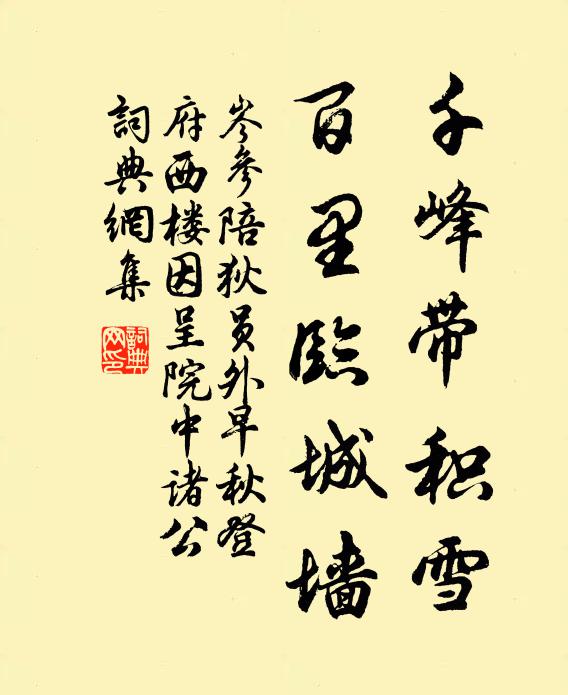 千峰带积雪
百里臨城墙
岑參陪狄员外早秋登
府西楼因呈院中诸公
詞典網集
詞典
网印